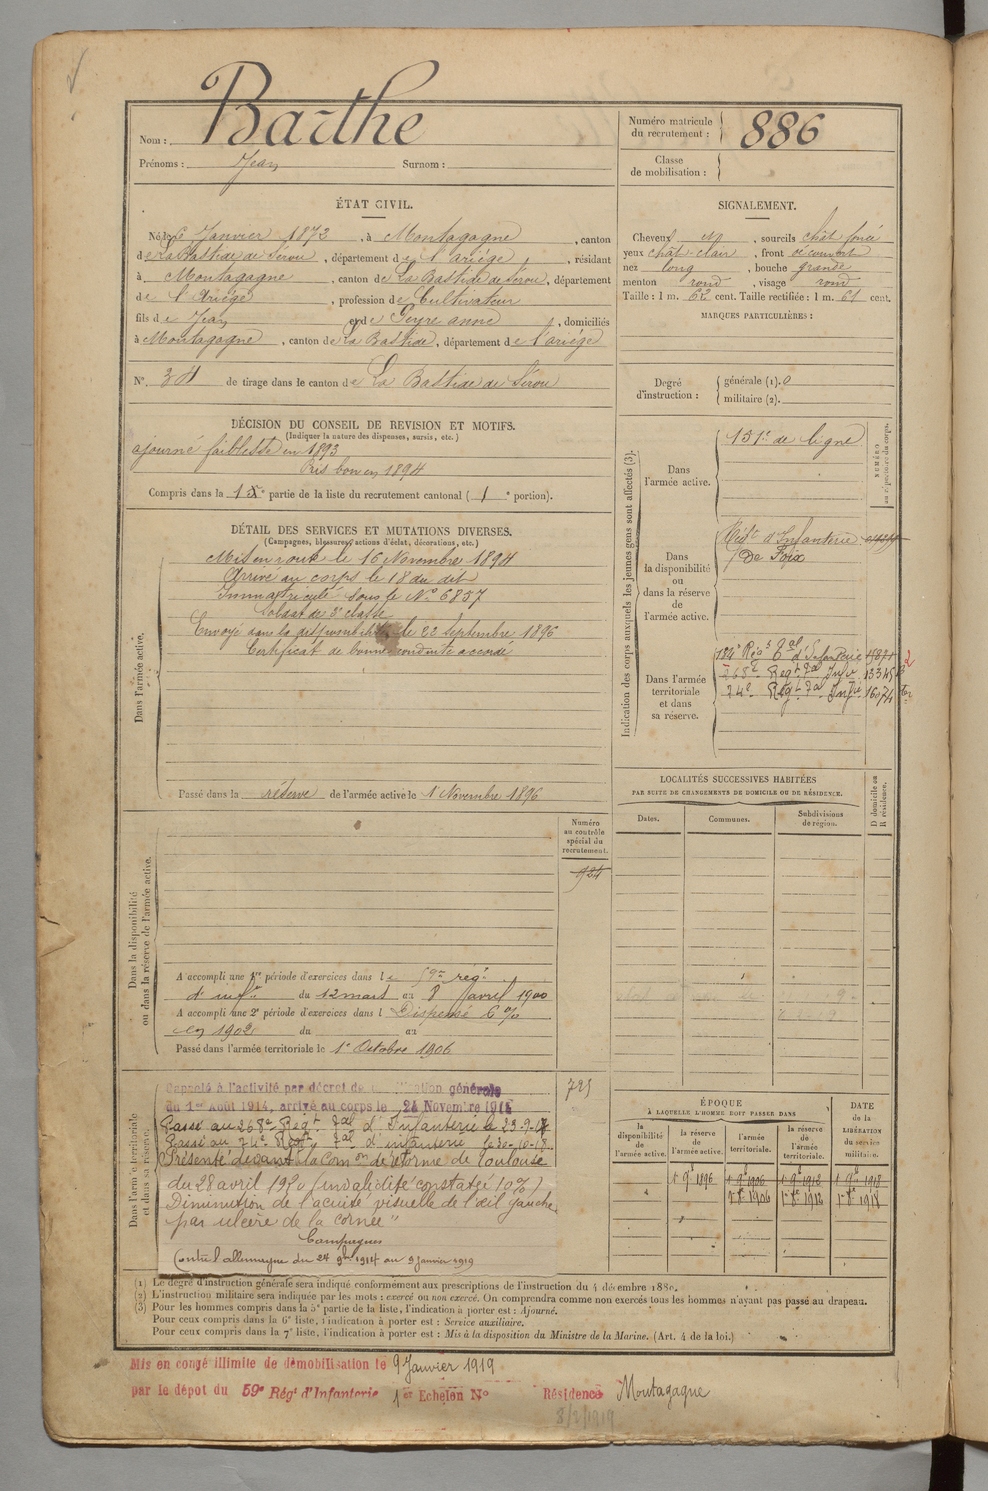 Nom : Barthe
Prénoms : Jean Surnom :
Numéro matricule
du recrutement : 886
Classe
de mobilisation :
ÉTAT CIVIL.
Né le 6 Janvier 1872, à Montagagne, canton
de La Bastide de Sérou, département de l'Ariège, résidant
à Montagagne, canton de La Bastide de Sérou, département
de l'Ariège, profession de Cultivateur
fils de Jean et de Peyre anne, domiciliés
à Montagagne, canton de La Bastide, département de l'ariège
N°. de tirage dans le canton de La Bastide de Sérou
SIGNALEMENT.
Cheveux , sourcils chât foncé
yeux chât-clair, front découvert
nez long, bouche grande
menton rond, visage rond
Taille : 1 m. 62 cent. Taille rectifiée : 1 m. 61 cent.
MARQUES PARTICULIÈRES :
Degré
d'instruction :
générale (1). 0
militaire (2).
DÉCISION DU CONSEIL DE REVISION ET MOTIFS.
(Indiquer la nature des dispenses, sursis, etc.)
ajourné faiblesse en 1893
Pris bon en 1894
Compris dans la 1e partie de la liste du recrutement cantonal ( 1 e portion).
DÉTAIL DES SERVICES ET MUTATIONS DIVERSES.
(Campagnes, blessures, actions d'éclat, décorations, etc.)
Dans l'armée active.
Mis en route le 16 Novembre 1894
Arrivé au corps le 18 du dit
Immatriculé sous le N° 6857
Soldat de 2e classe
Envoyé dans la disponibilité le 22 Septembre 1896
Certificat de bonne conduite accordé
Passé dans la réserve de l'armée active le 1 Novembre 1896
Indication des corps auxquels les jeunes gens sont affectés (3).
NUMÉRO
au répertoire du corps.
Dans
l'armée active.
151e de ligne
Dans
la disponibilité
ou
dans la réserve
de
l'armée active.
Régt d'Infanterie
De Foix
Dans l'armée
territoriale
et dans
sa réserve.
134e Régt Tal d'Infanterie
268e Regt Tal Infie 13345
74e Regt Tal Infie 16074 ter
LOCALITÉS SUCCESSIVES HABITÉES
PAR SUITE DE CHANGEMENTS DE DOMICILE OU DE RÉSIDENCE.
Dates. Communes. Subdivisions
de région.
D domicile ou
R résidence.
Dans la disponibilité
ou dans la réserve de l'armée active.
Numéro
au contrôle
spécial du
recrutement.
924
A accompli une 1re période d'exercices dans le 59me régt
d'infie du 12 mars au 8 avril 1900
A accompli une 2e période d'exercices dans l Dispensé 6%
en 1902 du au
Passé dans l'armée territoriale le 1er Octobre 1906
Dans l'armée territoriale
et dans sa réserve.
725
Rappelé à l'activité par décret de générale
du 1er Août 1914, arrivé au corps le 24 Novembre 1914
Passé au 268e Régt Tal d'Infanterie le 23-9-17
Passé au 74e Regt Tal d'infanterie le 20-10-18
Présenté devant la Comon de réforme de Toulouse
du 28 avril 1920 (invalidité constatée 10%)
Diminution de l'acuité visuelle de l'œil gauche
par ulcère de la cornée"
Campagnes
Contre l'allemagne du 24 9bre 1914 au 9 janvier 1919
ÉPOQUE
À LAQUELLE L'HOMME DOIT PASSER DANS
DATE
de la
LIBÉRATION
du service
militaire.
la
disponibilité
de
l'armée active.
la réserve
de
l'armée active.
l'armée
territoriale.
la réserve
de
l'armée
territoriale.
1 9b 1896 1 9b 1906 1 9b 1912 1 9b 1918
1 8e 1906 1 8e 1912 1 8e 1918
(1) Le degré d'instruction générale sera indiqué conformément aux prescriptions de l'instruction du 4 décembre 1889.
(2) L'instruction militaire sera indiquée par les mots : exercé ou non exercé. On comprendra comme non exercés tous les hommes n'ayant pas passé au drapeau.
(3) Pour les hommes compris dans la 5e partie de la liste, l'indication à porter est : Ajourné.
Pour ceux compris dans la 6e liste, l'indication à porter est : Service auxiliaire.
Pour ceux compris dans la 7e liste, l'indication à porter est : Mis à la disposition du Ministre de la Marine. (Art. 4 de la loi.)
Mis en congé illimité de démobilisation le 9 Janvier 1919
par le dépôt du 59e Régt d'Infanterie 1er Echelon N° Résidence Montagagne
8/2/1919